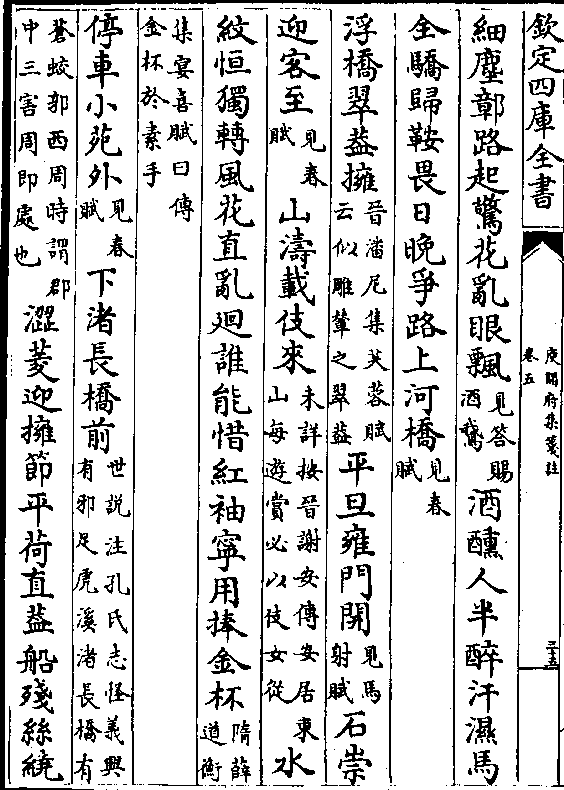 欽定四庫全書
庾開府集箋註
卷五
細塵鄣路起驚花亂眼飄見答賜酒鵞酒醺人半醉汗濕馬
全驕歸鞍畏日晚爭路上河橋見春賦
浮橋翠葢擁晉潘尼集芙蓉賦云似雕輦之翠葢平旦雍門開見馬射賦石崇
迎客至見春賦山濤載伎來未詳按晉謝安傳安居東山每遊賞必以伎女從水
紋恒獨轉風花直亂廻誰能惜紅袖寧用捧金杯隋薛道衡
集宴喜賦曰傳金杯於素手
停車小苑外見春賦下渚長橋前世説注孔氏志怪義興有邪足虎溪渚長橋有
蒼蛟郭西周時謂郡中三害周即處也澀菱迎擁節平荷直葢船殘絲繞